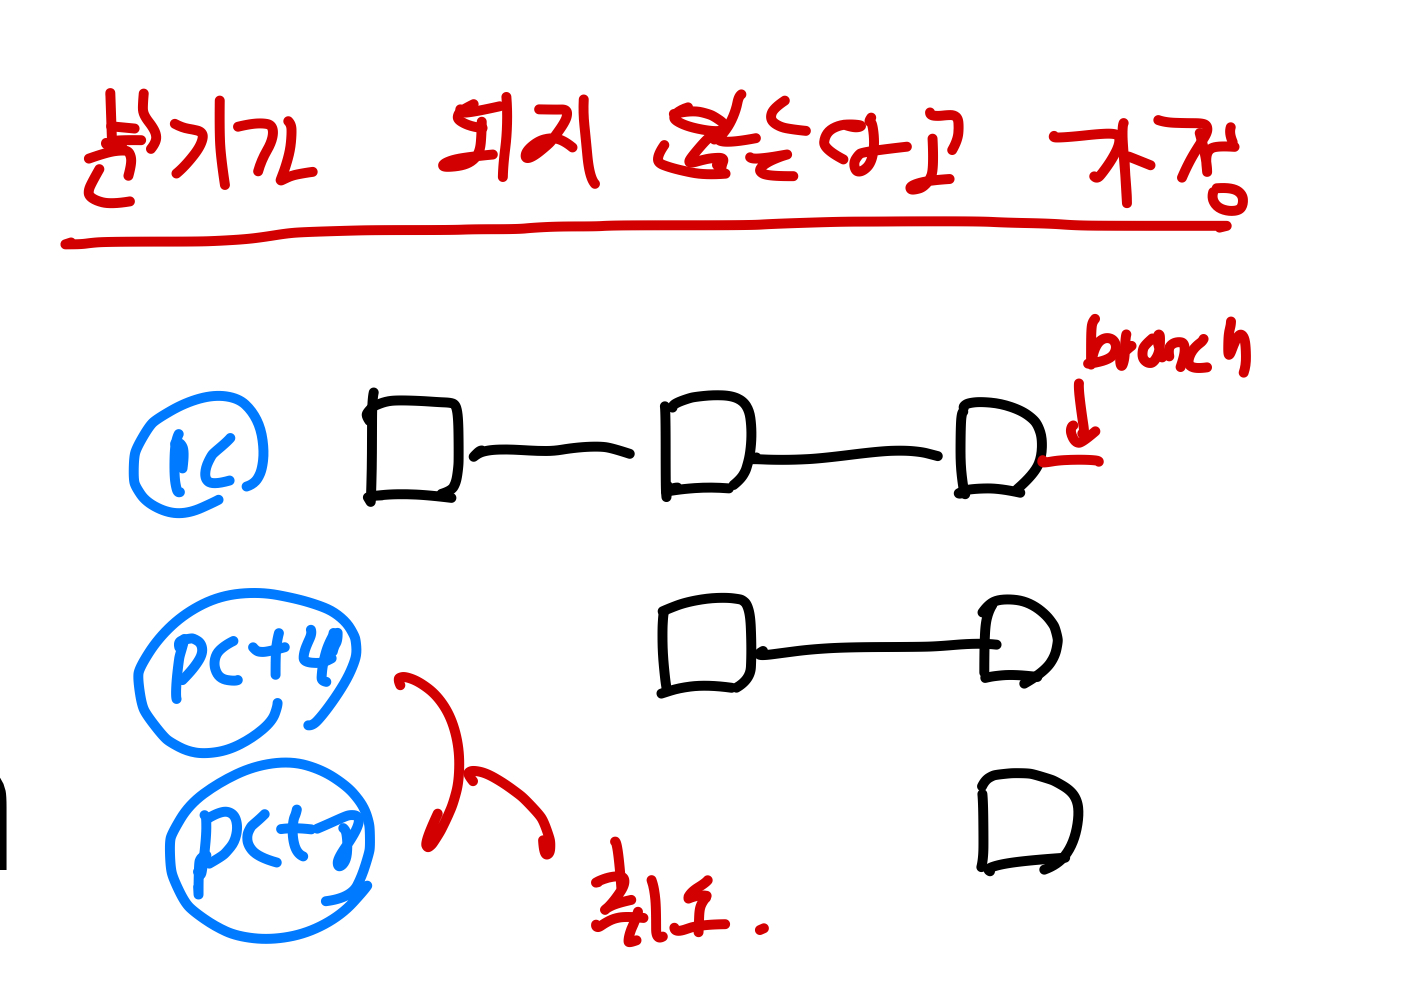 분기가 되지 않는다고 가정
branch
PC
PC+4
PC+8
취소.